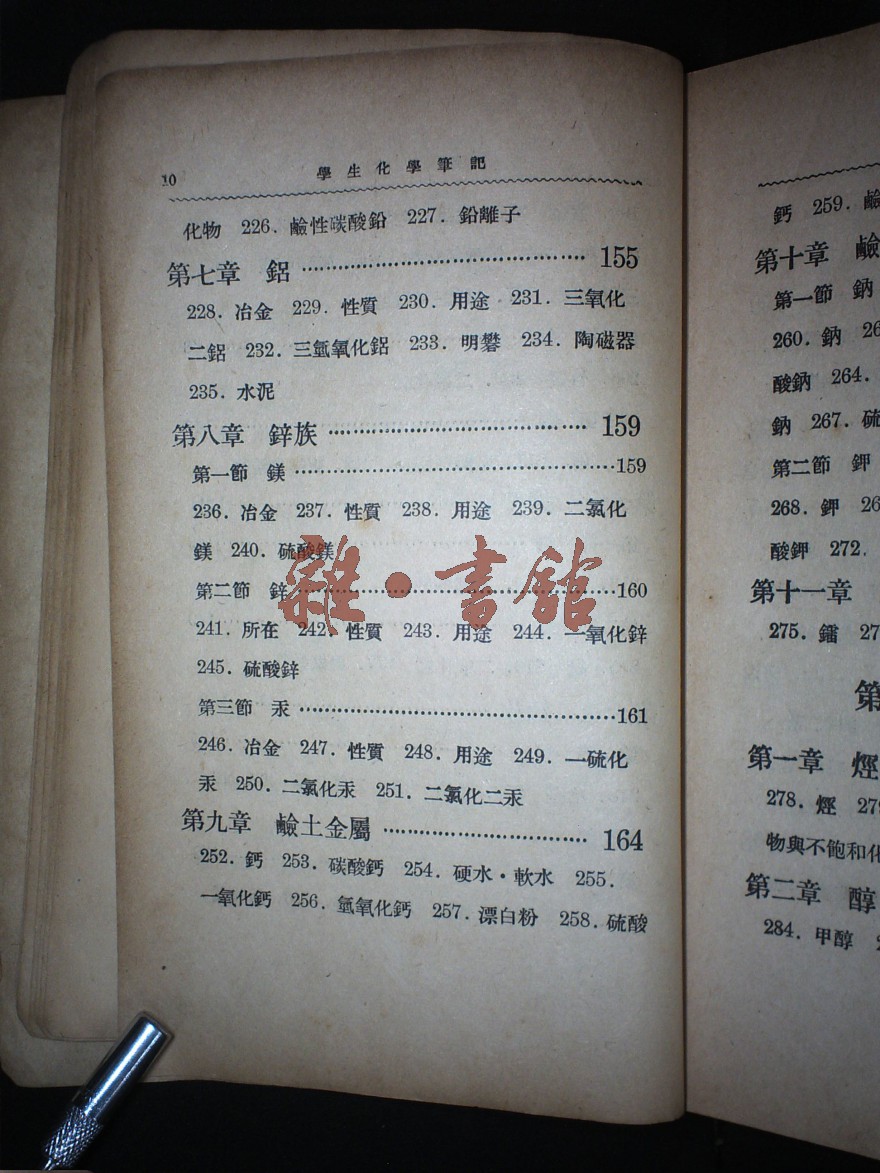 10
學生化學筆記
化物 226. 鹼性碳酸鉛 227. 鉛離子
第七章 鋁 ………………………………… 155
228. 冶金 229. 性質 230. 用途 231. 三氧化
二鋁 232. 三氫氧化鋁 233. 明礬 234. 陶磁器
235. 水泥
第八章 鋅族 ……………………………… 159
第一節 鎂 ……………………………………159
236. 冶金 237. 性質 238. 用途 239. 二氯化
鎂 240. 硫酸鎂
第二節 鋅 ……………………………………160
241. 所在 242. 性質 243. 用途 244. 一氧化鋅
245. 硫酸鋅
第三節 汞 ……………………………………161
246. 冶金 247. 性質 248. 用途 249. 一硫化
汞 250. 二氯化汞 251. 二氯化二汞
第九章 鹼土金屬 ………………………… 164
252. 鈣 253. 碳酸鈣 254. 硬水·軟水 255.
一氧化鈣 256. 氫氧化鈣 257. 漂白粉 258. 硫酸
雜·書館
鈣 259.
第十章 鹼
第一節 鈉
260. 鈉
酸鈉 264.
鈉 267. 硫
第二節 鉀
268. 鉀
酸鉀 272.
第十一章
275. 鐳
第
第一章 烴
278. 烴
物與不飽和化
第二章 醇
284. 甲醇